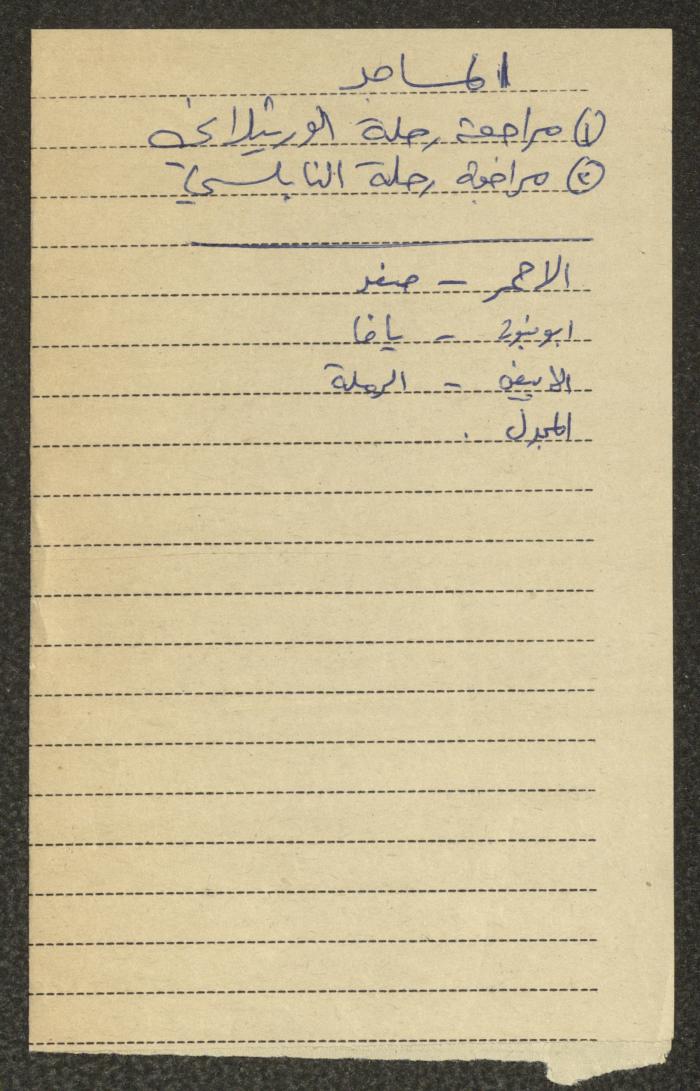 المساجد
١ مراجعة رحلة الورثيلاني
٢ مراجعة رحلة النابلسي
الاحمر - صفد
ابو نبوت - يافا
الابيض - الرملة
المجدل .